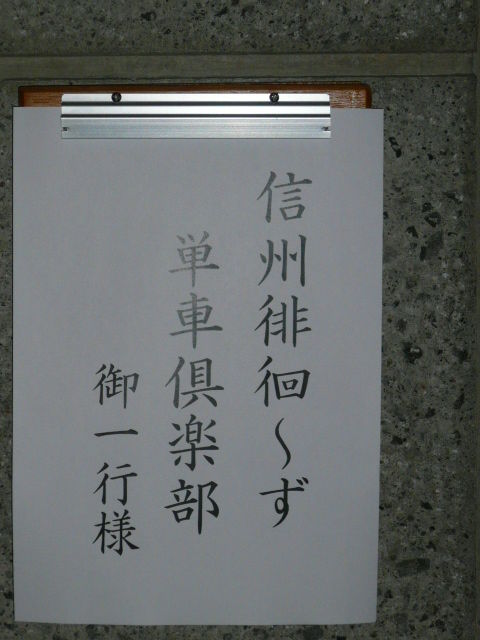 信州徘徊～ず
単車倶楽部
御一行様